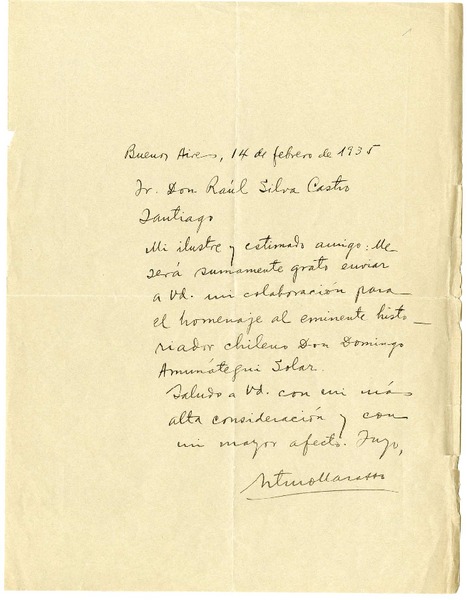 Buenos Aires, 14 de febrero de 1935
Sr. Don Raúl Silva Castro
Santiago
Mi ilustre y estimado amigo: Me
será sumamente grato enviar
a Vd. mi colaboración para
el homenaje al eminente histo-
riador chileno Don Domingo
Amunátegui Solar.
Saludo a Vd. con mi más
alta consideración y con
mi mayor afecto. Suyo,
Arturo Marasso